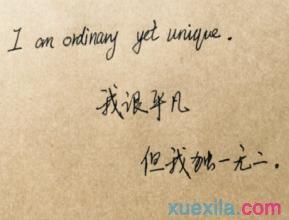 I am ordinary yet unique.
我很平凡
但我独一无二.
xuexila.com